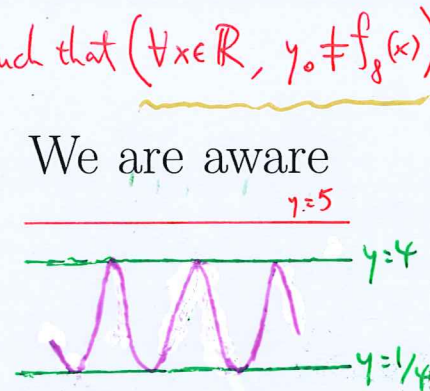 uch that (∀x∈ℝ, y₀≠f₈(x))
We are aware
y=5
y=4
y=1/4